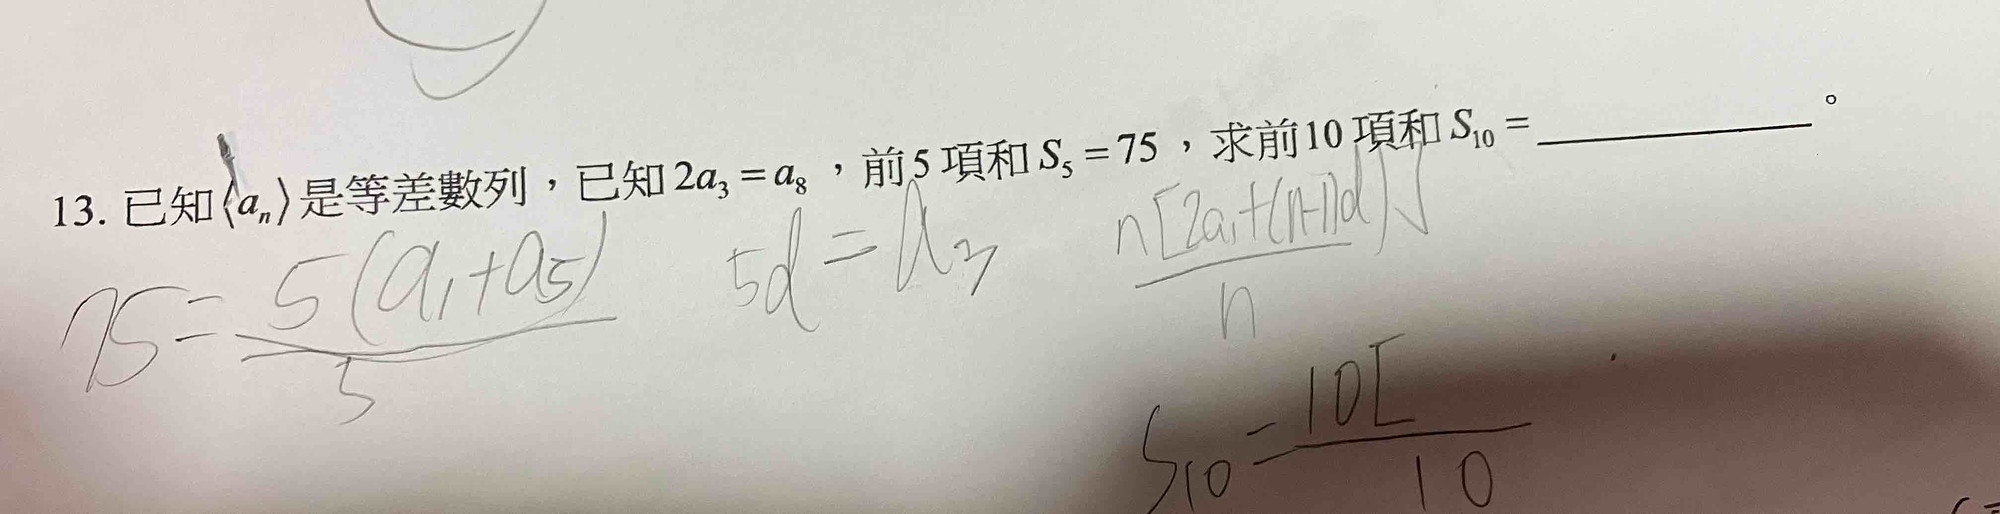 13. 已知⟨aₙ⟩是等差數列，已知2a₃=a₈，前5項和S₅=75，求前10項和S₁₀=____________。
75=5(a₁+a₅)/5
5d=a₃
n[2a₁+(n-1)d]/n
S₁₀=10[/10